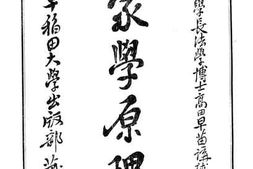 學長法學博士高田早苗講述
家學原理
早稻田大學出版部蔵